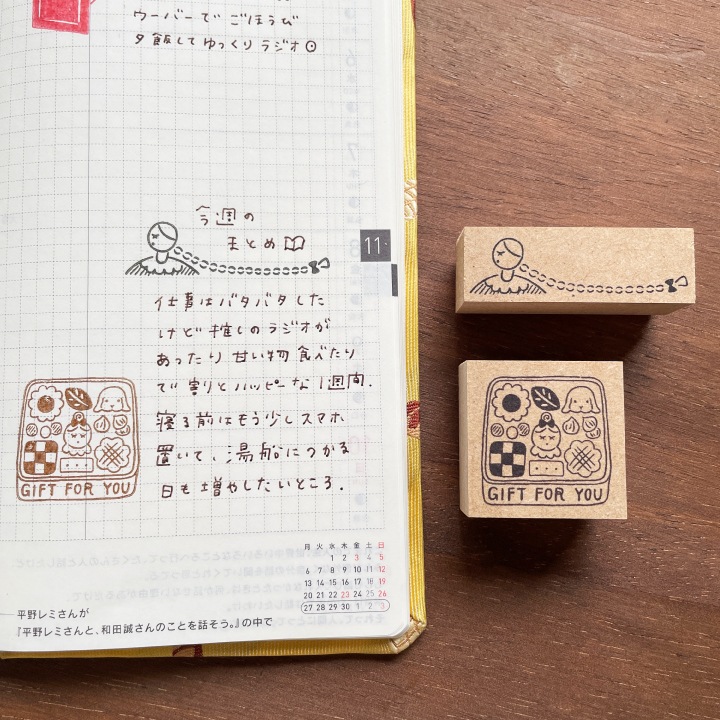 ウーバーで ごほうび
夕飯して ゆっくりラジオ
今週の
まとめ
11
仕事はバタバタした
けど 推しのラジオが
あったり 甘い物 食べたり
で 割りと ハッピーな 1週間.
寝る前はもう少し スマホ
置いて、湯船につかる
日も 増やしたいところ.
GIFT FOR YOU
GIFT FOR YOU
月 火 水 木 金 土 日
1 2 3 4 5
6 7 8 9 10 11 12
13 14 15 16 17 18 19
20 21 22 23 24 25 26
27 28 29 30 1 2 3
平野レミさんが
『平野レミさんと、和田誠さんのことを話そう。』の中で